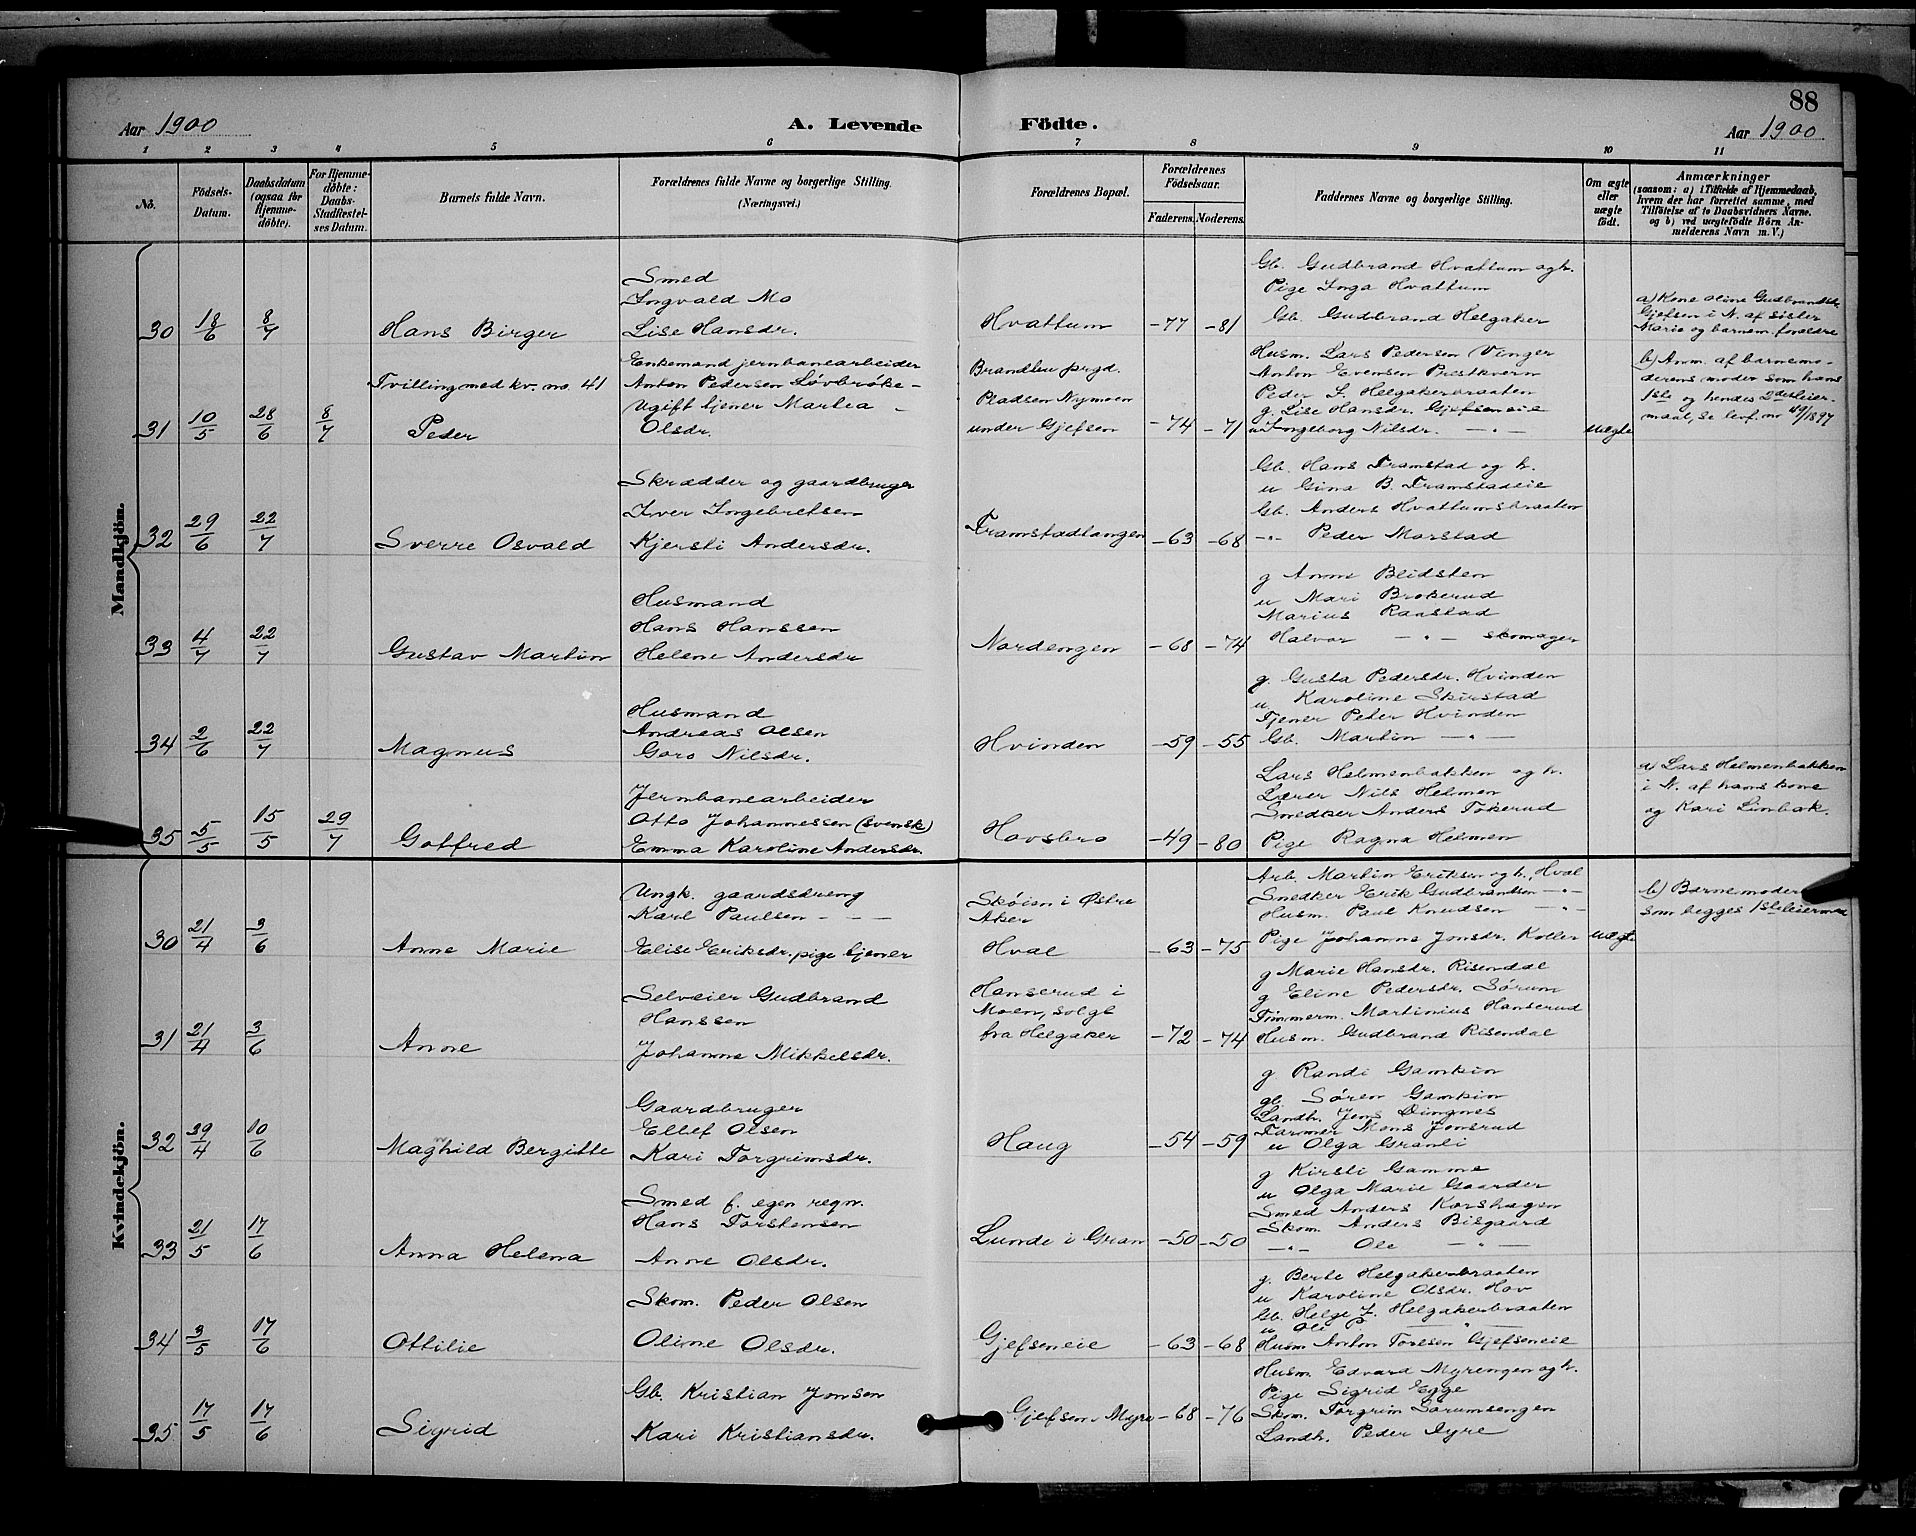 88
Aar 1900
A. Levende
Födte.
Aar 1900
1 2 3 4 5 6 7 8 9 10 11
No.
Födsels-
Datum.
Daabsdatum
(ogsaa for
Hjemme-
döbte).
For Hjemme-
döbte:
Daabs-
Stadfestel-
ses Datum.
Barnets fulde Navn.
Forældrenes fulde Navne og borgerlige Stilling.
(Næringsvei.)
Forældrenes Bopæl.
Forældrenes
Födselsaar.
Faderens. Moderens.
Faddernes Navne og borgerlige Stilling.
Om ægte
eller
uægte
födt.
Anmærkninger
(saasom: a) i Tilfælde af Hjemmedaab,
hvem der har forrettet samme, med
Tilföielse af to Daabsvidners Navne,
og b) ved uægtefödte Börn An-
melderens Navn m. V.)
Mandkjön.
30 18/6 8/7 Hans Birger
Smed
Ingvald Mo
Lise Hansdr.
Hvattum -77 -81
Gb. Gudbrand Hvattum og h.
Pige Inga Hvattum
Gb. Gudbrand Helgaker
a) Kone Oline Gudbrandsdr.
Gjefsen i N. af søster
Marie og barnem. forældre
31 10/5 28/6 8/7
Tvilling med kv. no. 41
Peder
Enkemand jernbanearbeider
Anton Pedersen Løvbrøke -
Ugift tjener Marthea -
Olsdr.
Brandbu prgd.
Pladsen Nymoen
under Gjefsen -74 -71
Husm. Lars Pedersen Vinger
Anton Evensen Prestkvern
Peder L. Helgakerbraaten
g. Lise Hansdr. Gjefseneie
u Ingeborg Nilsdr. -"-
uægte
b) Anm. af barnemo-
derens moder som hans
1ste og hendes 2det leier-
maal, se levf. nr 49/1897
32 29/6 22/7 Sverre Osvald
Skrædder og gaardbruger
Iver Ingebretsen
Kjersti Andersdr.
Framstadtangen -63 -68
Gb. Hans Framstad og h.
u Gina B. Framstadeie
Gb. Anders Hvattumsbraaten
-"- Peder Morstad
33 4/7 22/7 Gustav Martin
Husmand
Hans Hanssen
Helene Andersdr
Nordengen -68 -74
g Anne Blidsten
u Mari Brokerud
Marius Raastad
Halvor -"- skomager
34 2/6 22/7 Magnus
Husmand
Andreas Olsen
Goro Nilsdr.
Hvinden -59 -55
g. Gusta Pedersdr. Hvinden
u Karoline Skirstad
Tjener Peter Hvinden
Gb. Martin -"-
35 5/5 15/5 29/7 Gotfred
Jernbanearbeider
Otto Johannessen (svensk)
Emma Karoline Andersdr.
Hovsbro -49 -80
Lars Helmenbakken og h.
Lærer Nils Helmen
Snedker Anders Tokerud
Pige Ragna Helmen
a) Lars Helmenbakken
i N. af hans kone
og Kari Limbak.
Kvindekjön.
30 21/4 3/6 Anne Marie
Ungk. gaardsdreng
Karl Paulsen - - -
Elise Eriksdr. pige tjener
Skøien i Østre
Aker
Hval -63 -75
Arb. Martin Eriksen og h. Hval
Snedker Erik Gudbrandsen -"-
Husm. Paul Knudsen -"-
Pige Johanne Jonsdr. Koller
uægte
b) Barnemoder
som begges 1ste leiermaal
31 21/4 3/6 Anne
Selveier Gudbrand
Hanssen
Johanne Mikkelsdr.
Hanserud i
Moen, solgt
fra Helgaker -72 -74
g Marie Hansdr. Risendal
g Eline Pedersdr. Sørum
Tømmerm. Martinius Hanserud
Husm. Gudbrand Risendal
32 29/4 10/6 Maghild Bergitte
Gaardbruger
Ellef Olsen
Kari Torgrimsdr.
Haug -54 -59
g. Randi Gamkin
gb. Søren Gamkin
Landh. Jens Dingnes
Farmer Mons Jonsrud
u Olga Granli
33 21/5 17/6 Anna Helena
Smed f. egen regn.
Hans Torstensen
Anne Olsdr.
Lunde i Gran -50 -50
g Kirsti Gamme
u Olga Marie Gaarder
Smed Anders Korshagen
Skom. Anders Bisgaard
-"- Ole -"-
34 3/5 17/6 Ottilie
Skom. Peder Olsen
Oline Olsdr.
Gjefseneie -63 -68
g. Berte Helgakerbraaten
u Karoline Olsdr. Hov
Gb. Helge L. Helgakerbraaten
u Ole P. -"-
Husm Anton Toresen Gjefseneie
35 17/5 17/6 Sigrid
Gb. Kristian Jonsen
Kari Kristiansdr.
Gjefsen, Myre -68 -76
Husm. Edvard Myrengen og h.
Pige Sigrid Egge
Skom. Torgrim Sørumsengen
Landh. Peder Egre